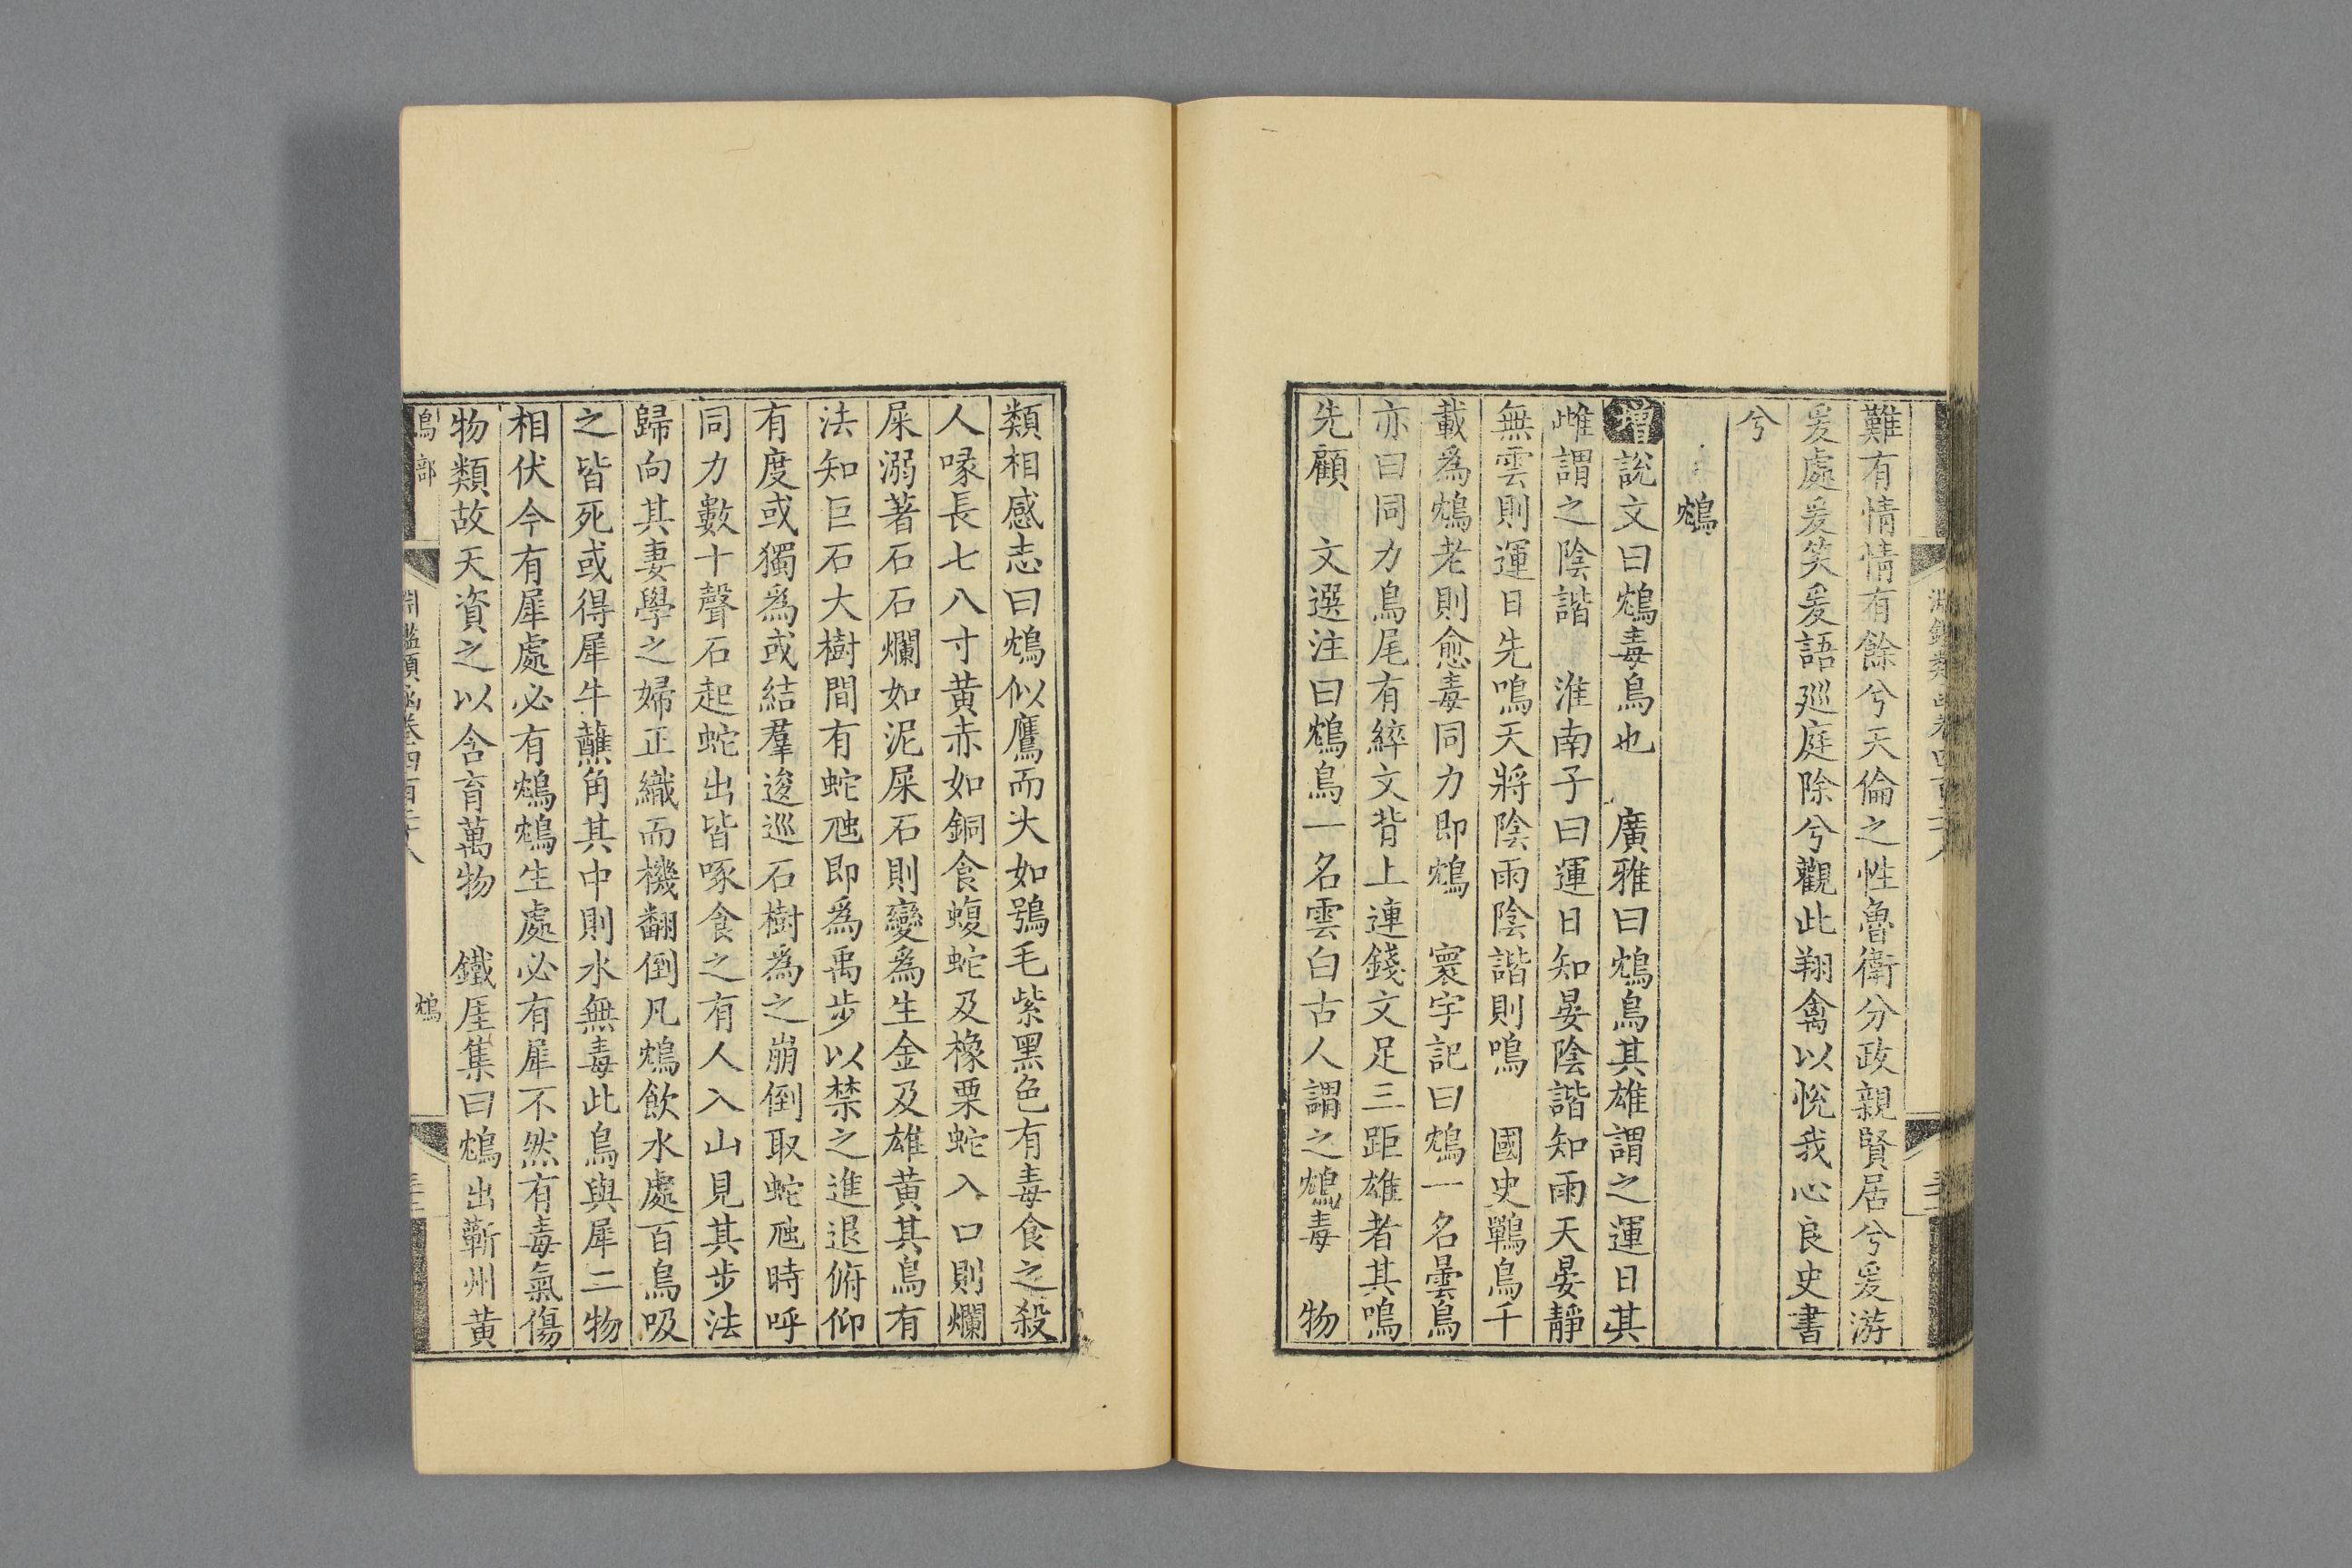 難有情情有餘兮天倫之性魯衛分政親賢居兮爰游
爰處爰笑爰語廵庭除兮觀此翔禽以悅我心良史書
兮
鴆
增說文曰鴆毒鳥也 廣雅曰鴆鳥其雄謂之運日其
雌謂之陰諧 淮南子曰運日知晏陰諧知雨天晏靜
無雲則運日先鳴天將陰雨陰諧則鳴 國史鷤鳥千
載為鴆老則愈毒同力即鴆 寰宇記曰鴆一名曇鳥
亦曰同力鳥尾有綷文背上連錢文足三距雄者其鳴
先顧 文選注曰鴆鳥一名雲白古人謂之鴆毒 物
類相感志曰鴆似鷹而大如鴞毛紫黑色有毒食之殺
人喙長七八寸黃赤如銅食蝮蛇及橡栗蛇入口則爛
屎溺著石石爛如泥屎石則變為生金及雄黃其鳥有
法知巨石大樹間有蛇虺即為禹步以禁之進退俯仰
有度或獨為或結羣逡巡石樹為之崩倒取蛇虺時呼
同力數十聲石起蛇出皆啄食之有人入山見其步法
歸向其妻學之婦正織而機翻倒凡鴆飲水處百鳥吸
之皆死或得犀牛蘸角其中則水無毒此鳥與犀二物
相伏今有犀處必有鴆鴆生處必有犀不然有毒氣傷
物類故天資之以含育萬物 鐵厓集曰鴆出蘄州黃
鳥部 淵鑑類函卷四百二十八 鴆